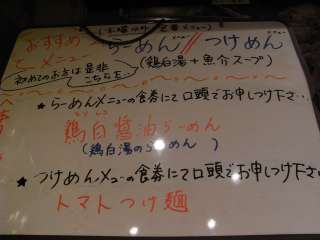 (木曜以外 定番メニュー)
おすすめ らーめん // つけめん
メニュー (鶏白湯+魚介スープ)
初めての方は是非
こちらを
★らーめんメニューの食券にて口頭でお申しつけ下さ…
鶏白醤油らーめん
(鶏白湯のらーめん )
★つけめんメニューの食券にて口頭でお申しつけ下さ
トマトつけ麺